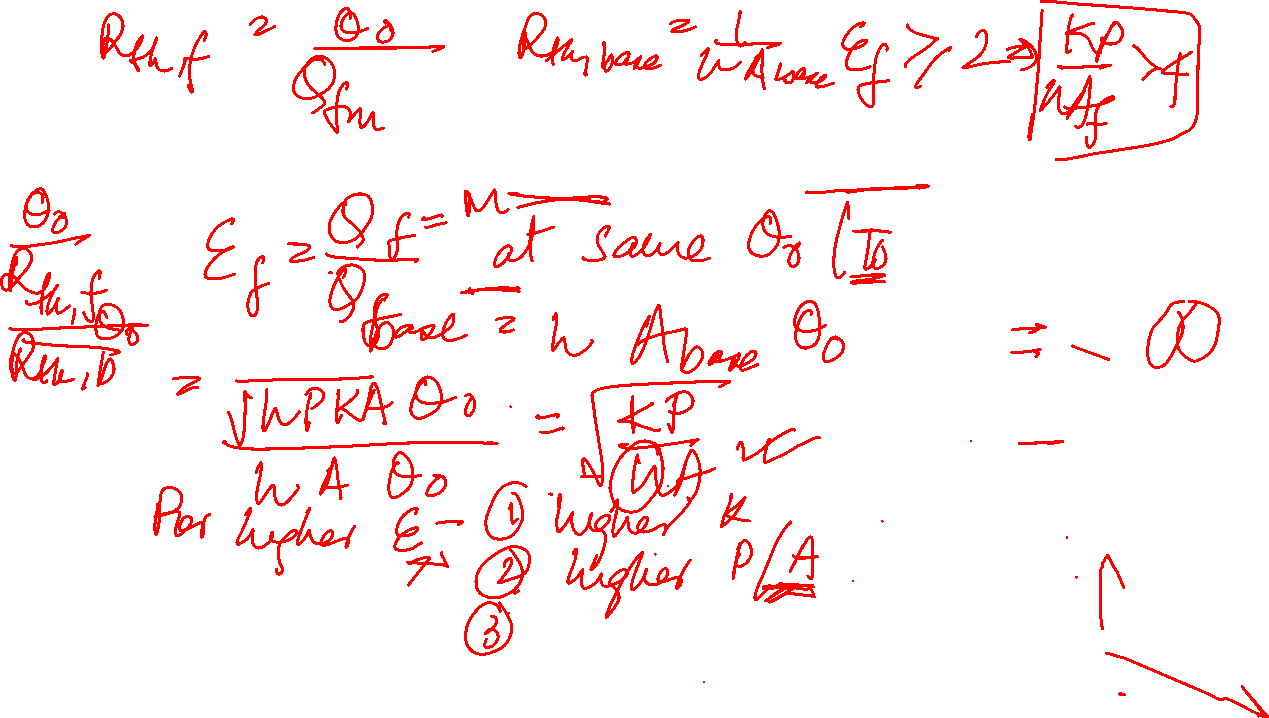 Rth,f = θ0 / Qfin   Rth,base = 1 / hAbase   εf ≥ 2 ⇒ KP / hAf > 4
θ0 / Rth,f / θ0 / Rth,b   εf = Qf / Qbase = M   at same θ0 (T0
Qbase = h Abase θ0   ⇒ ∞
= √hPKA θ0 / h A θ0 = √KP / hA
For higher ε – ① higher K
② higher P/A
③